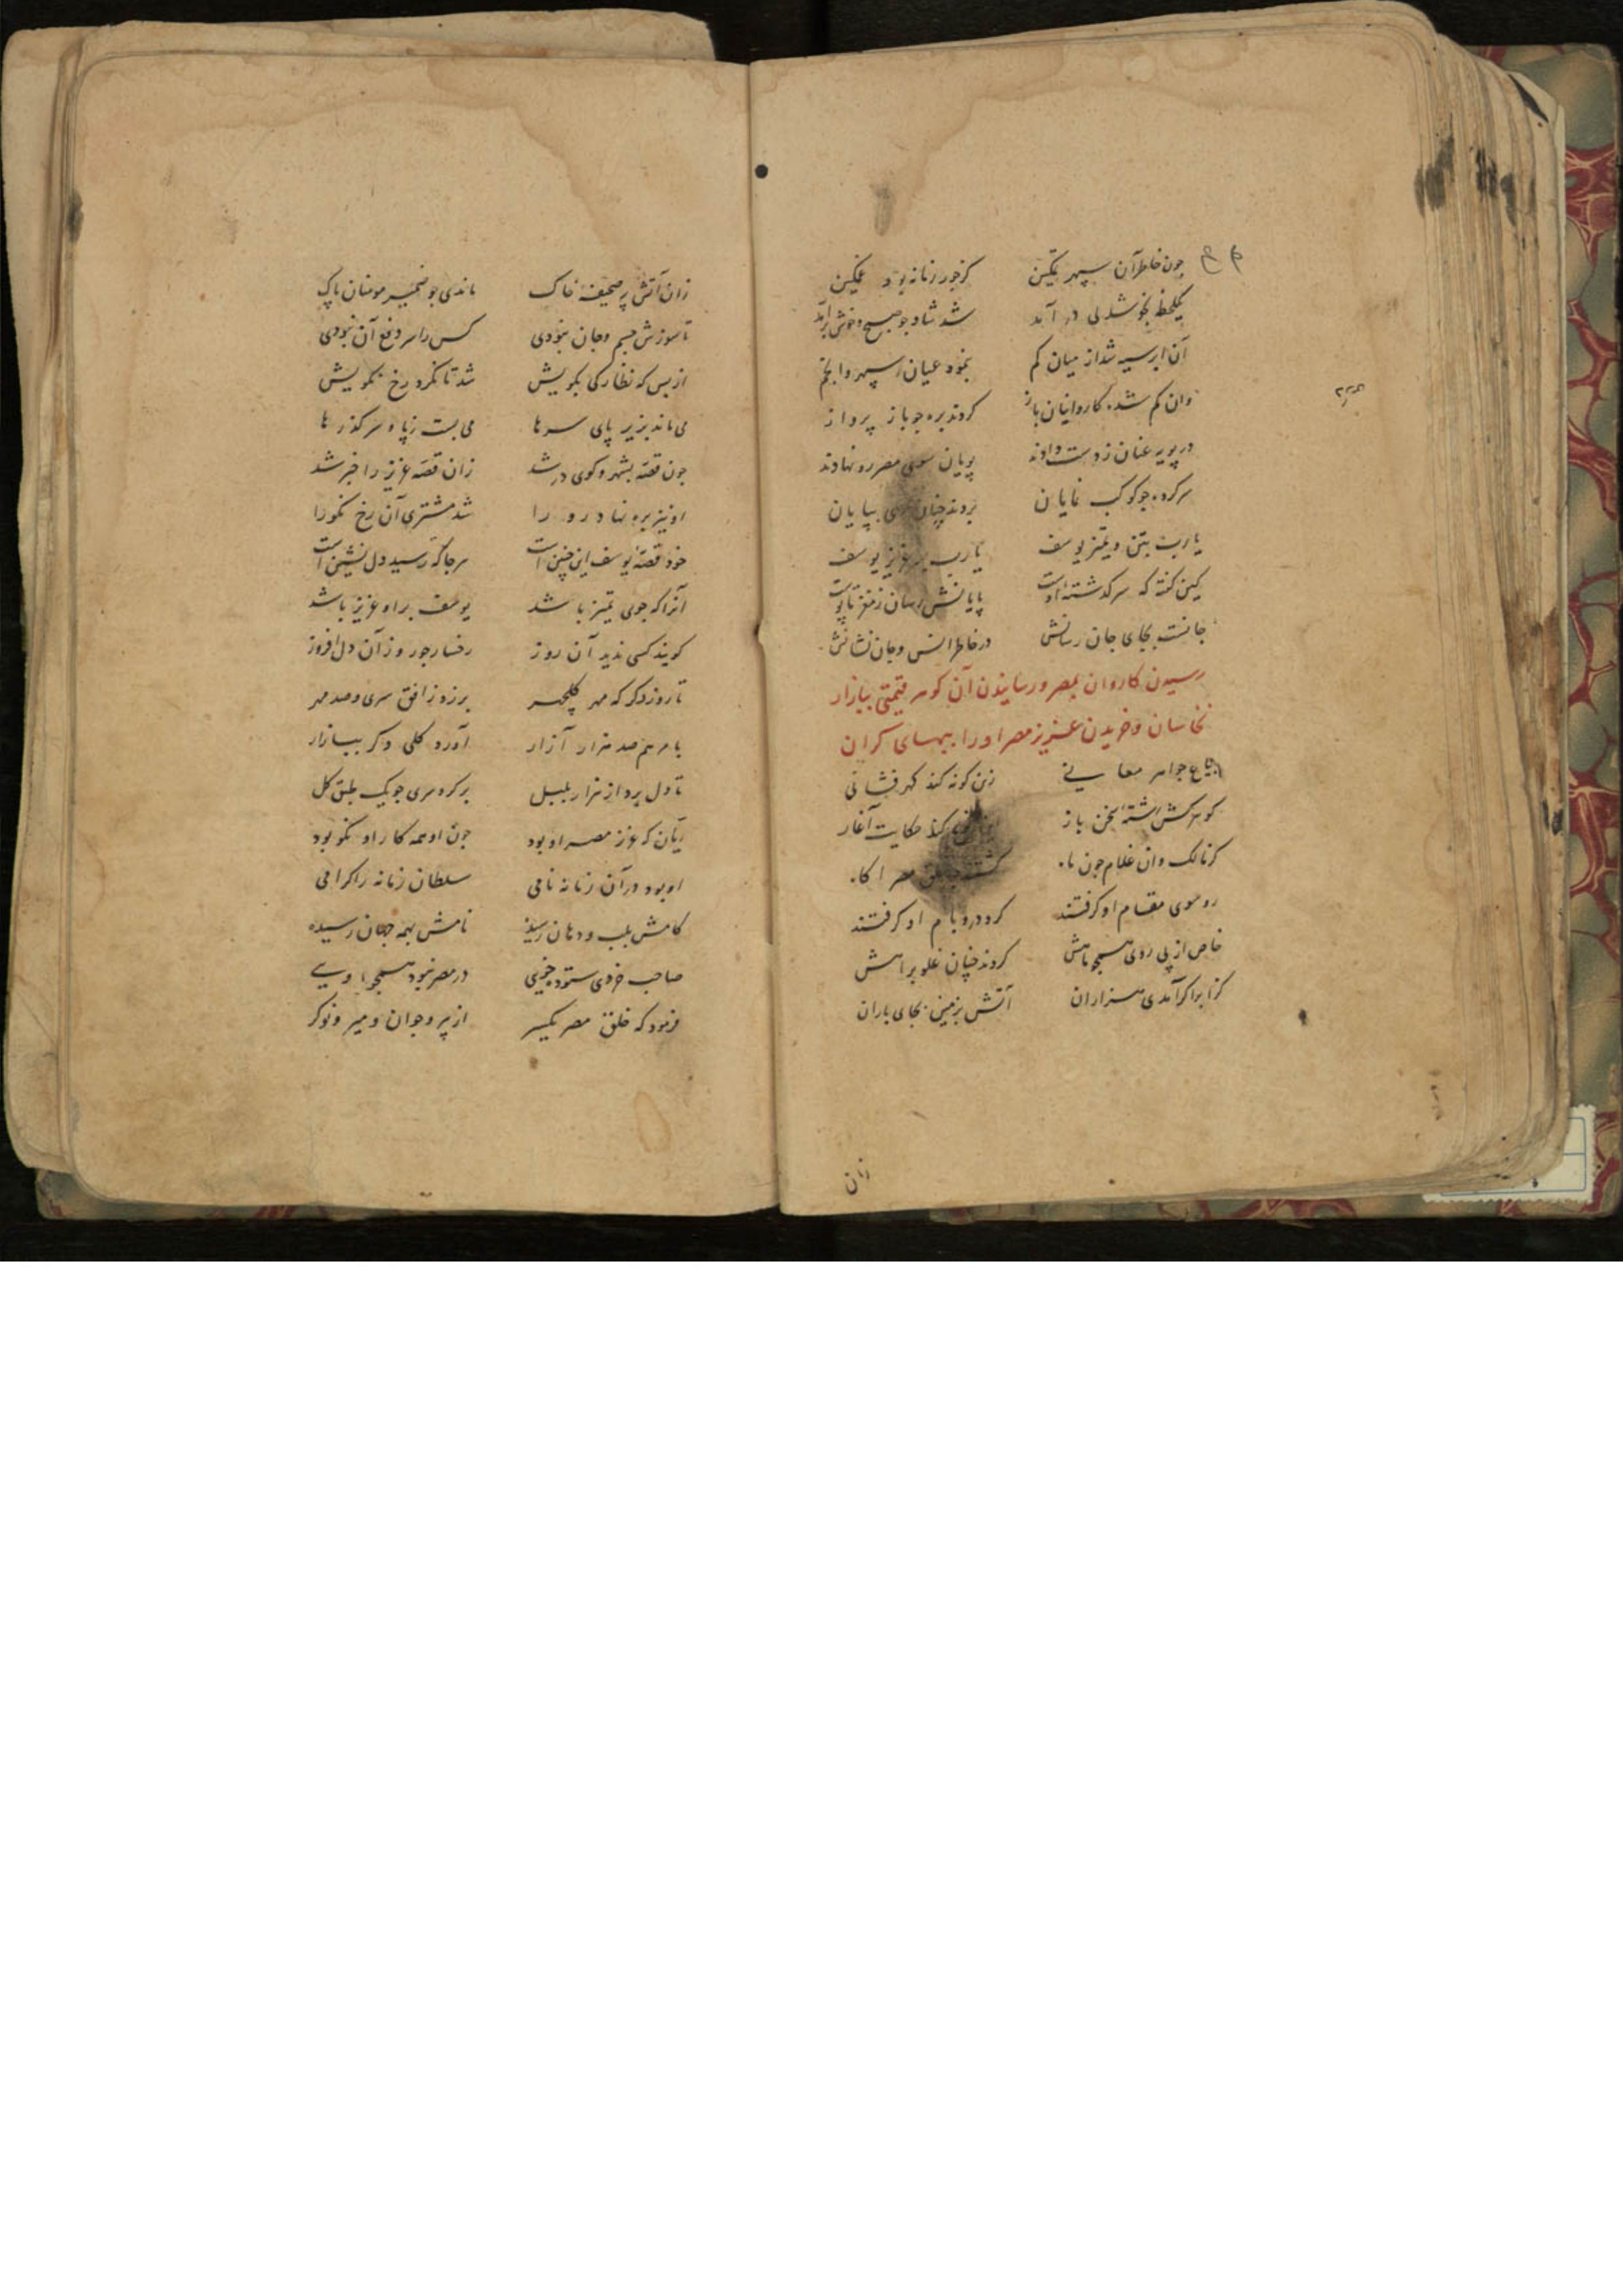 چون خاطر آن سپهر تمکین کز جور زمانه بود غمگین
یکلحظه بخوشدلی در آمد شد شاد چو صبح و خوش برآمد
آن ابر سیه شد از میان کم بنمود عیان سپهر و انجم
وان کم شده کاروانیان باز کردند بره چو باز پرواز
در پویه عنان ز دست دادند پویان سوی مصر رو نهادند
سر کرده چو کوکب نمایان بردند چنان بپایان
یارب بتن و تمیز یوسف یارب عزیز یوسف
کین کفته که سرکذشته اوست پایانش رسان ز مغز تا پوست
جانست بجای جان رسانش در خاطر انس و جان نشانش
رسیدن کاروان بمصر و رسانیدن آن کوهر قیمتی ببازار
نخاسان و خریدن عزیز مصر او را ببهای کران
بیاع جواهر معانی زین کونه کند کهرفشانی
کوهرکش رشته سخن باز کند حکایت آغاز
کز مالک وان غلام چون ماه کشتند خلق مصر اکاه
رو سوی مقام او کرفتند کرد در و بام او کرفتند
خاص از پی روی همچو ماهش کردند چنان غلو براهش
کز ابر اکر آمدی هزاران آتش بزمین بجای باران
زان
زان آتش بر صحیفه خاک ماندی چو ضمیر مومنان پاک
تا سوزش جسم و جان نبودی کس را سر دفع آن نبودی
از بس که نظارکی بکویش شد تا نکرد رخ نکویش
می ماند بزیر پای سرها می بست ز پا و سر کذرها
چون قصه بشهر و کوی در شد زان قصه عزیز را خبر شد
او نیز بره نهاد رو را شد مشتری آن رخ نکو را
خود قصه یوسف این چنین است هر جا که رسید دل نشین است
آنرا که جوی تمیز باشد یوسف بر او عزیز باشد
کویند کسی ندید آن روز رخسار چو روز آن دل افروز
تا روز دکر که مهر کلچهر برزد ز افق سری و صد مهر
با مرهم صد هزار آزار آورد کلی دکر ببازار
تا دل برد از هزار بلبل بر کرد سری چو یک طبق کل
ریان که عزیز مصر او بود چون او همه کار او نکو بود
او بود در آن زمانه نامی سلطان زمانه را کرامی
کامش بلب و دهان رسیده نامش بهمه جهان رسیده
صاحب خردی ستوده خویی در مصر نبود همچو اویی
فرمود که خلق مصر یکسر از پیر و جوان و میر و نوکر